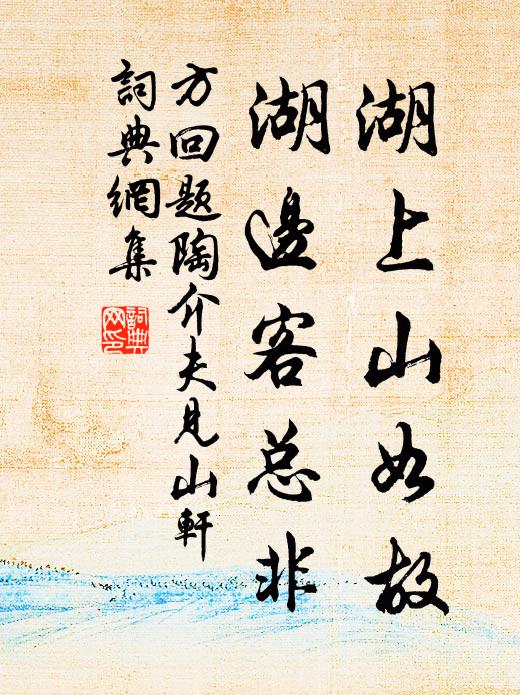 湖上山如故
湖邊客总非
方回题陶介夫見山軒
詞典網集
詞典
网印